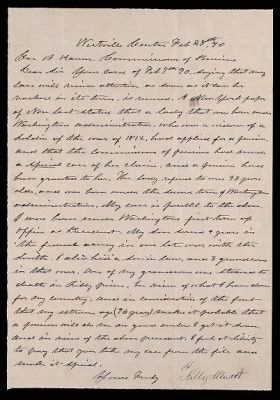 Westville Center Feb 28th, 90
Commissioner of Pensions
Dear Sir Yours of Feb 7th 90, saying that my
case will receive attention as soon as it can be
reached in its turn, is received. A New York paper
of Nov last states that a lady that was born under
Washingtons administration, who was a widow of a
soldier of the war of 1812, had applied for a pension
and that the Commissioner of pensions had made
a special case of her claim, and a pension had
been granted to her. The lady referred to was 93 years
old, and was born under the second term of Washingtons
administration. My case is parallel to the above.
I was born under Washingtons first term of
office as President. My son served 4 years in
the federal army in our late war with the
South. I also had a son in law, and 3 grandsons
in that war. One of my grandsons was starved to
death in Libby prison. In view of what I have done
for my country, and in consideration of the fact
that my extreme age (96 years) makes it probable that
a pension will do me no good unless I get it soon.
And in view of the above precedent. I feel at liberty
to pray that you take my case from the file and
make it special.
Yours Truly